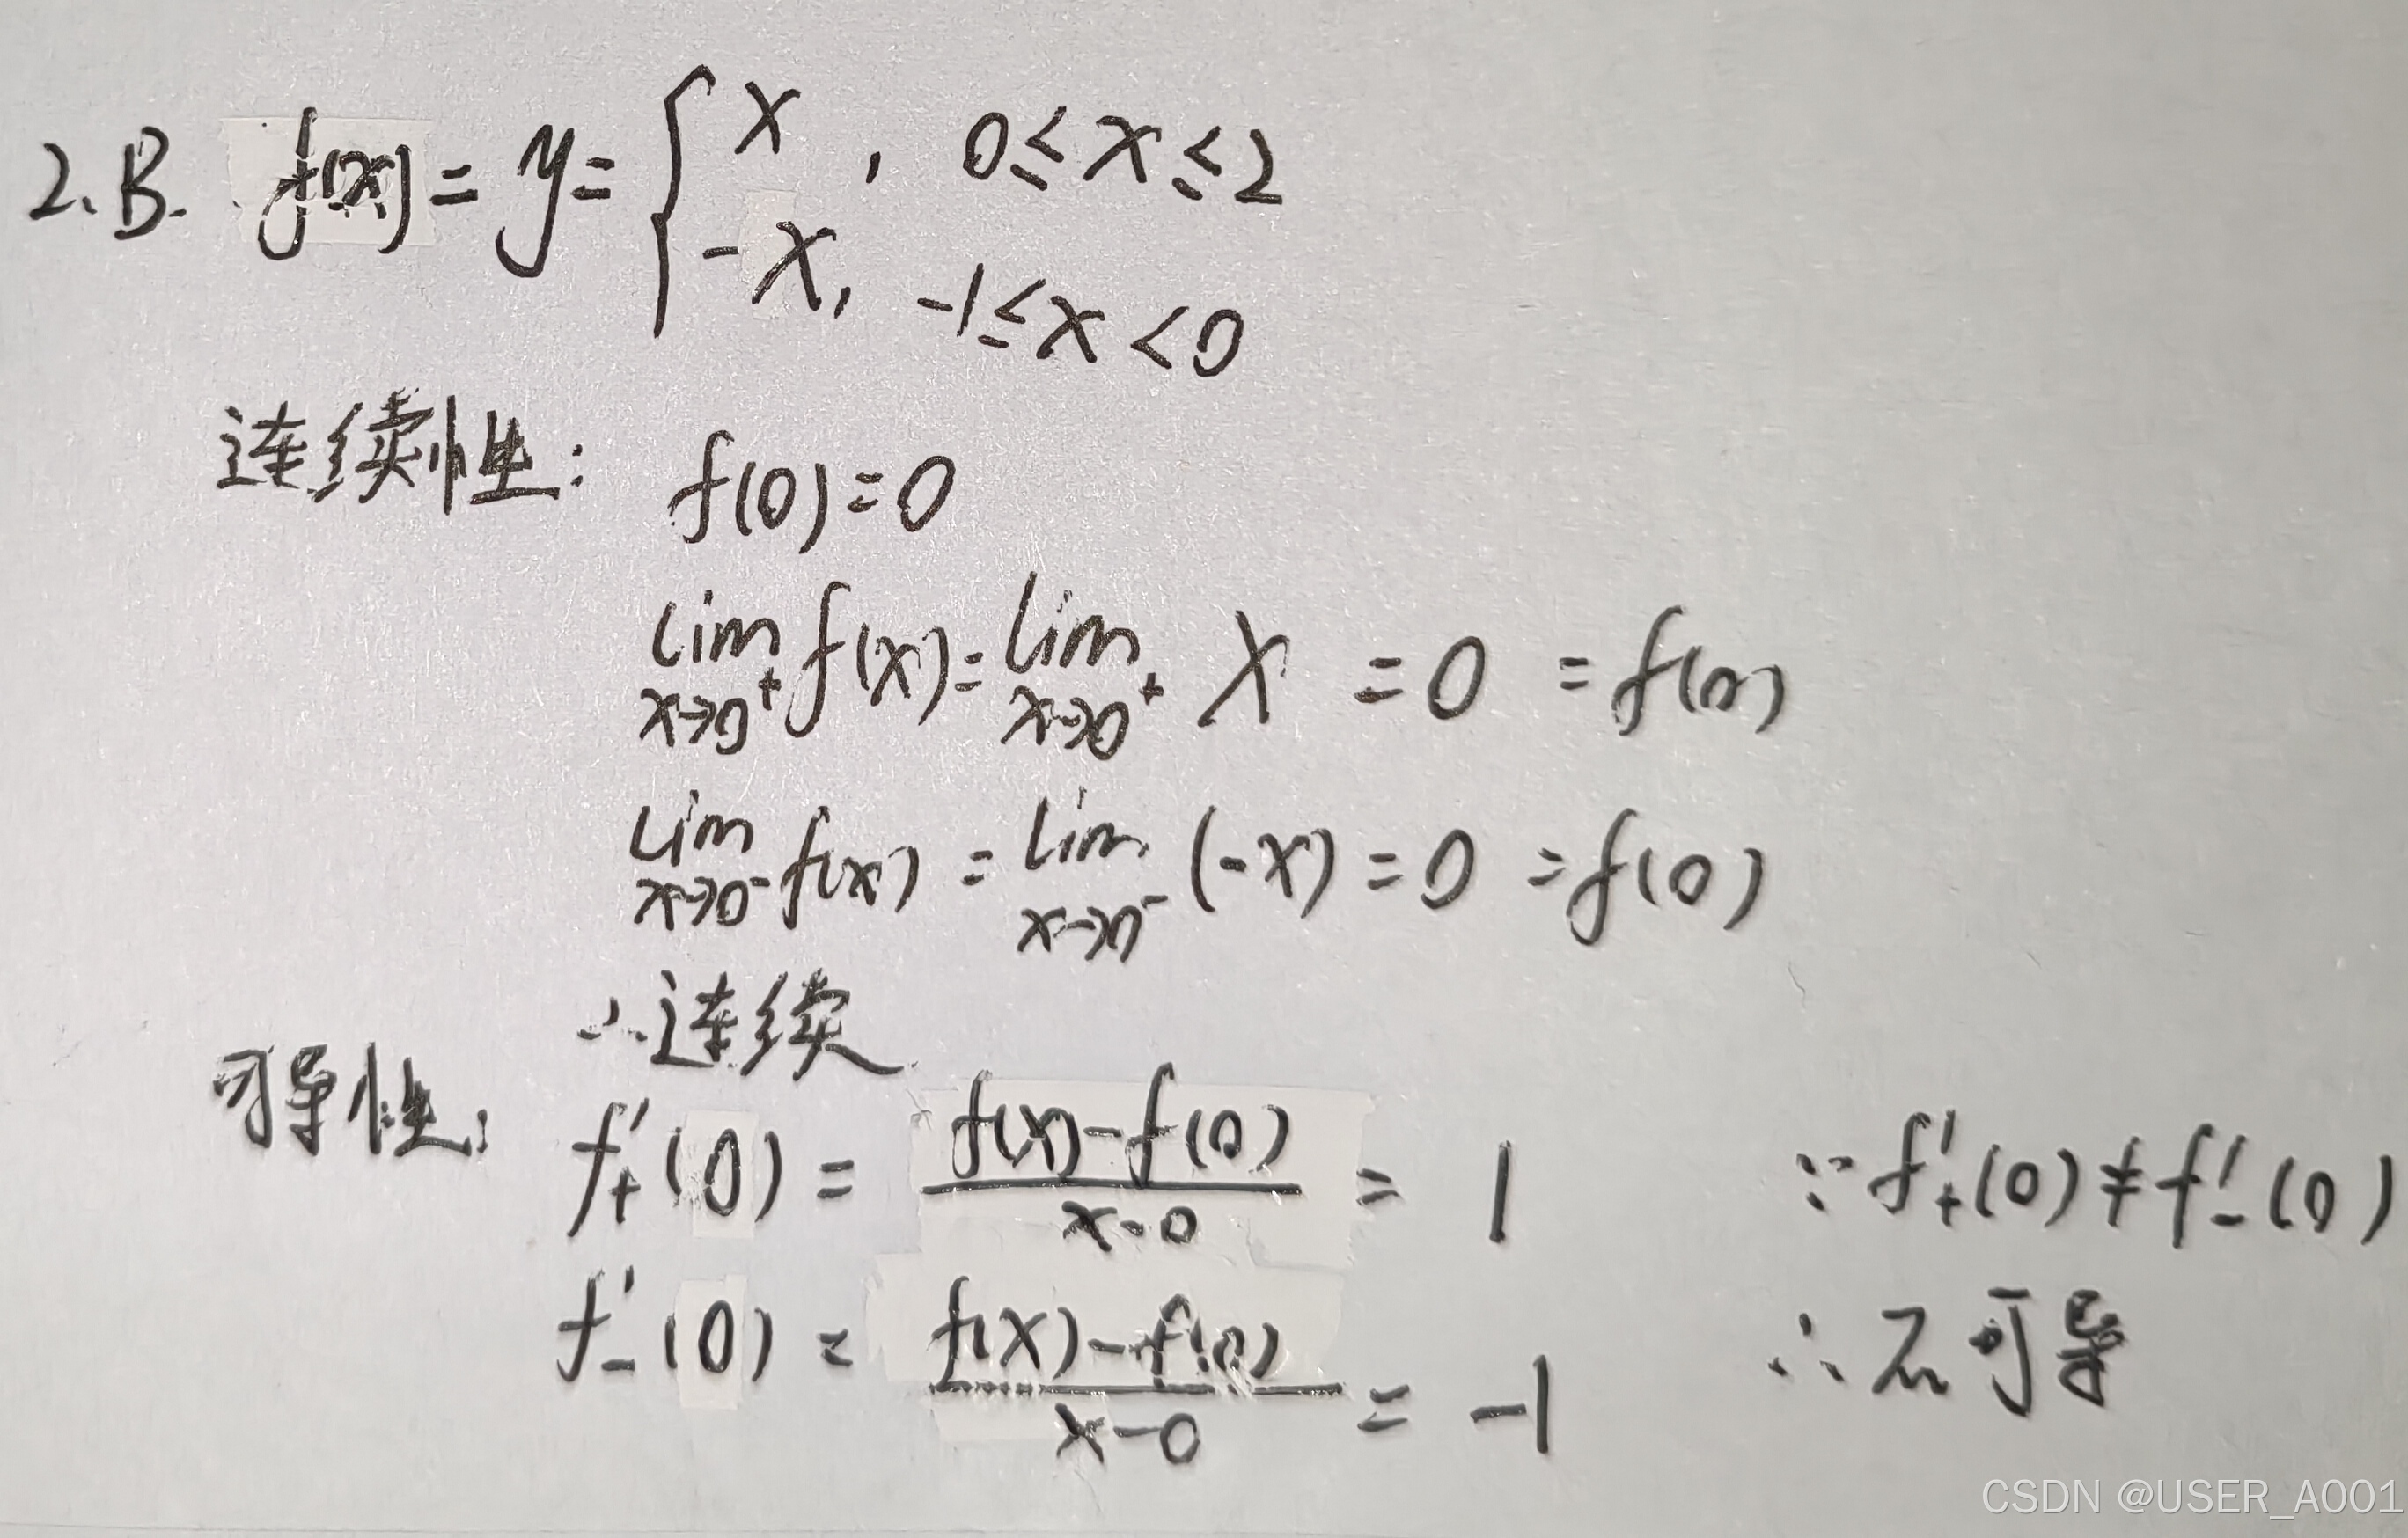 2. B. f(x) = y = { x , 0 ≤ x ≤ 2
-x, -1 ≤ x < 0
连续性: f(0) = 0
lim x→0⁺ f(x) = lim x→0⁺ x = 0 = f(0)
lim x→0⁻ f(x) = lim x→0⁻ (-x) = 0 = f(0)
∴连续
可导性: f'₊(0) = (f(x)-f(0))/(x-0) = 1 ∵ f'₊(0) ≠ f'₋(0)
f'₋(0) = (f(x)-f(0))/(x-0) = -1 ∴不可导
CSDN @USER_A001